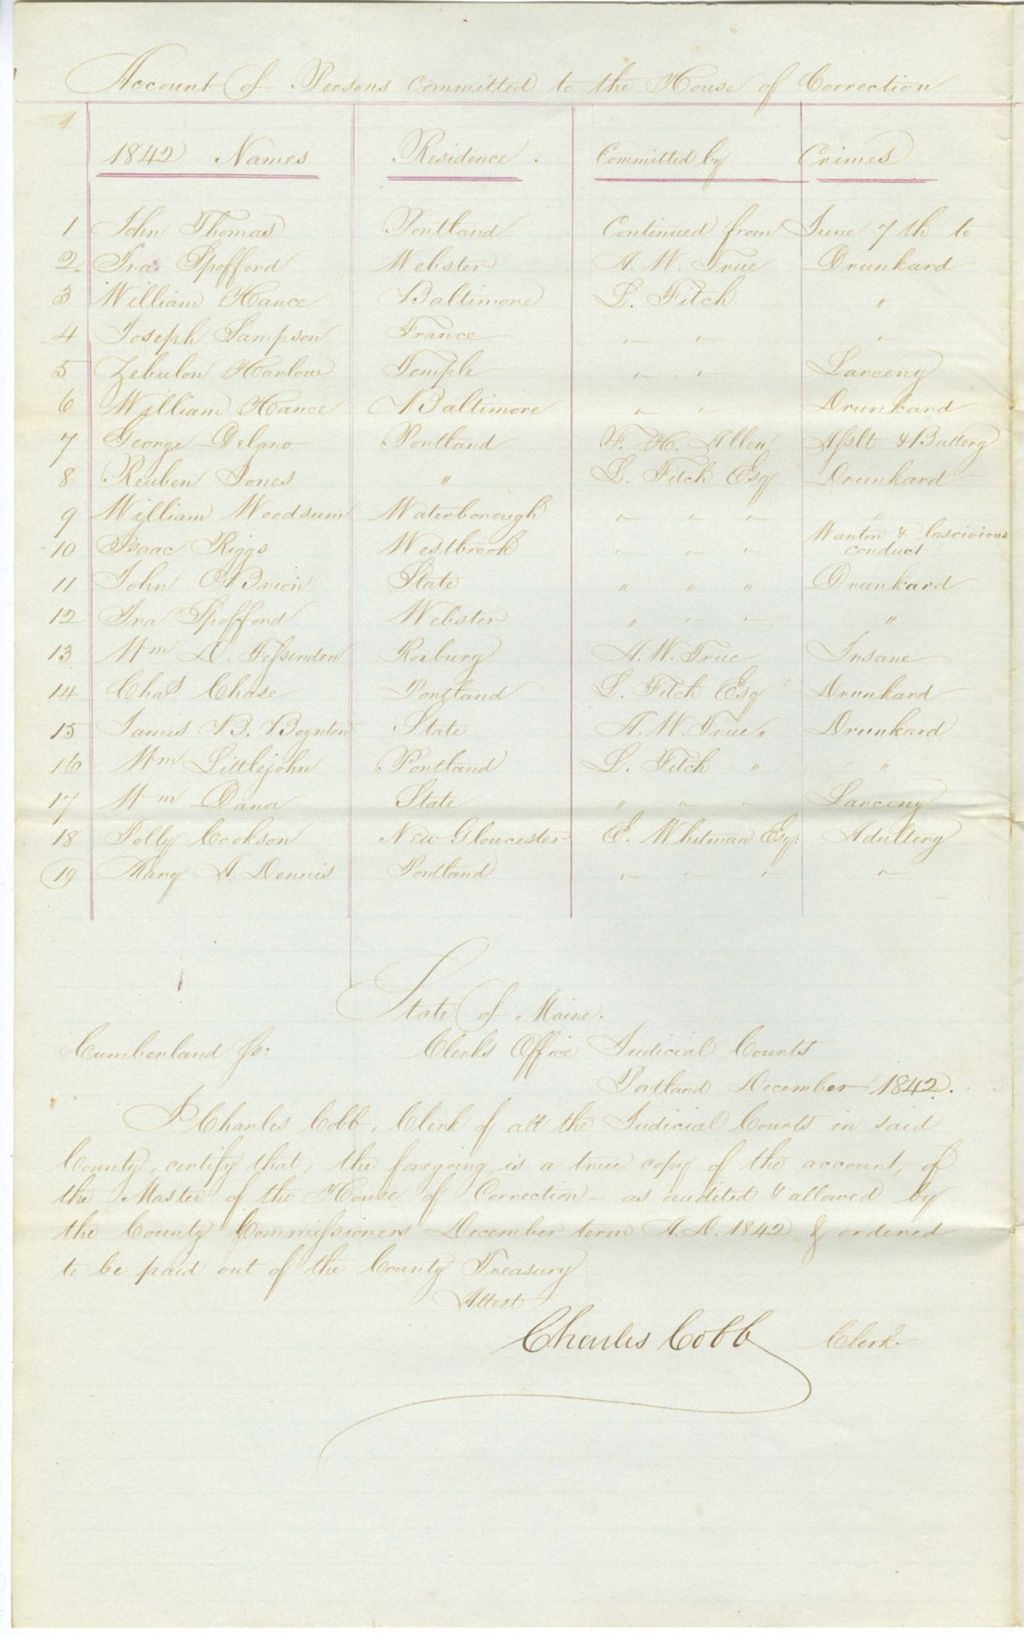 Account of Persons committed to the House of Correction
1842 Names Residence. Committed by Crimes
1 John Thomas Portland Continued from June 7th to
2. Ira Spofford Webster A. W. True Drunkard
3 William Hance Baltimore L. Fitch "
4 Joseph Sampson France " " "
5 Zebulon Harlow Temple " " Larceny
6 William Hance Baltimore " " Drunkard
7 George Delano Portland F. H. Allen Asslt & Battery
8 Reuben Jones " L. Fitch Esq Drunkard
9 William Woodsum Waterborough " " " "
10 Isaac Riggs Westbrook " " " Wanton & lascivious
conduct
11 John O'Brion State " " " Drunkard
12 Ira Spofford Webster " " " "
13 Wm D. Fessenden Roxbury A. W. True Insane
14 Chas Chase Portland L. Fitch Esq Drunkard
15 James B. Boynton State A. W. True " Drunkard
16 Wm Littlejohn Portland L. Fitch " "
17 Wm Dana State " " " Larceny
18 Polly Cookson New Gloucester E. Whitman Esq: Adultery
19 Mary A. Dennis Portland " " " "
State of Maine.
Cumberland Ss: Clerk's Office Judicial Courts
Portland December 1842.
I Charles Cobb, Clerk of all the Judicial Courts in said
County, certify that, the foregoing, is a true copy of the account, of
the Master of the House of Correction - as audited & allowed by
the County Commissioners December term A.D. 1842 & ordered
to be paid out of the County Treasury
Attest
Charles Cobb Clerk